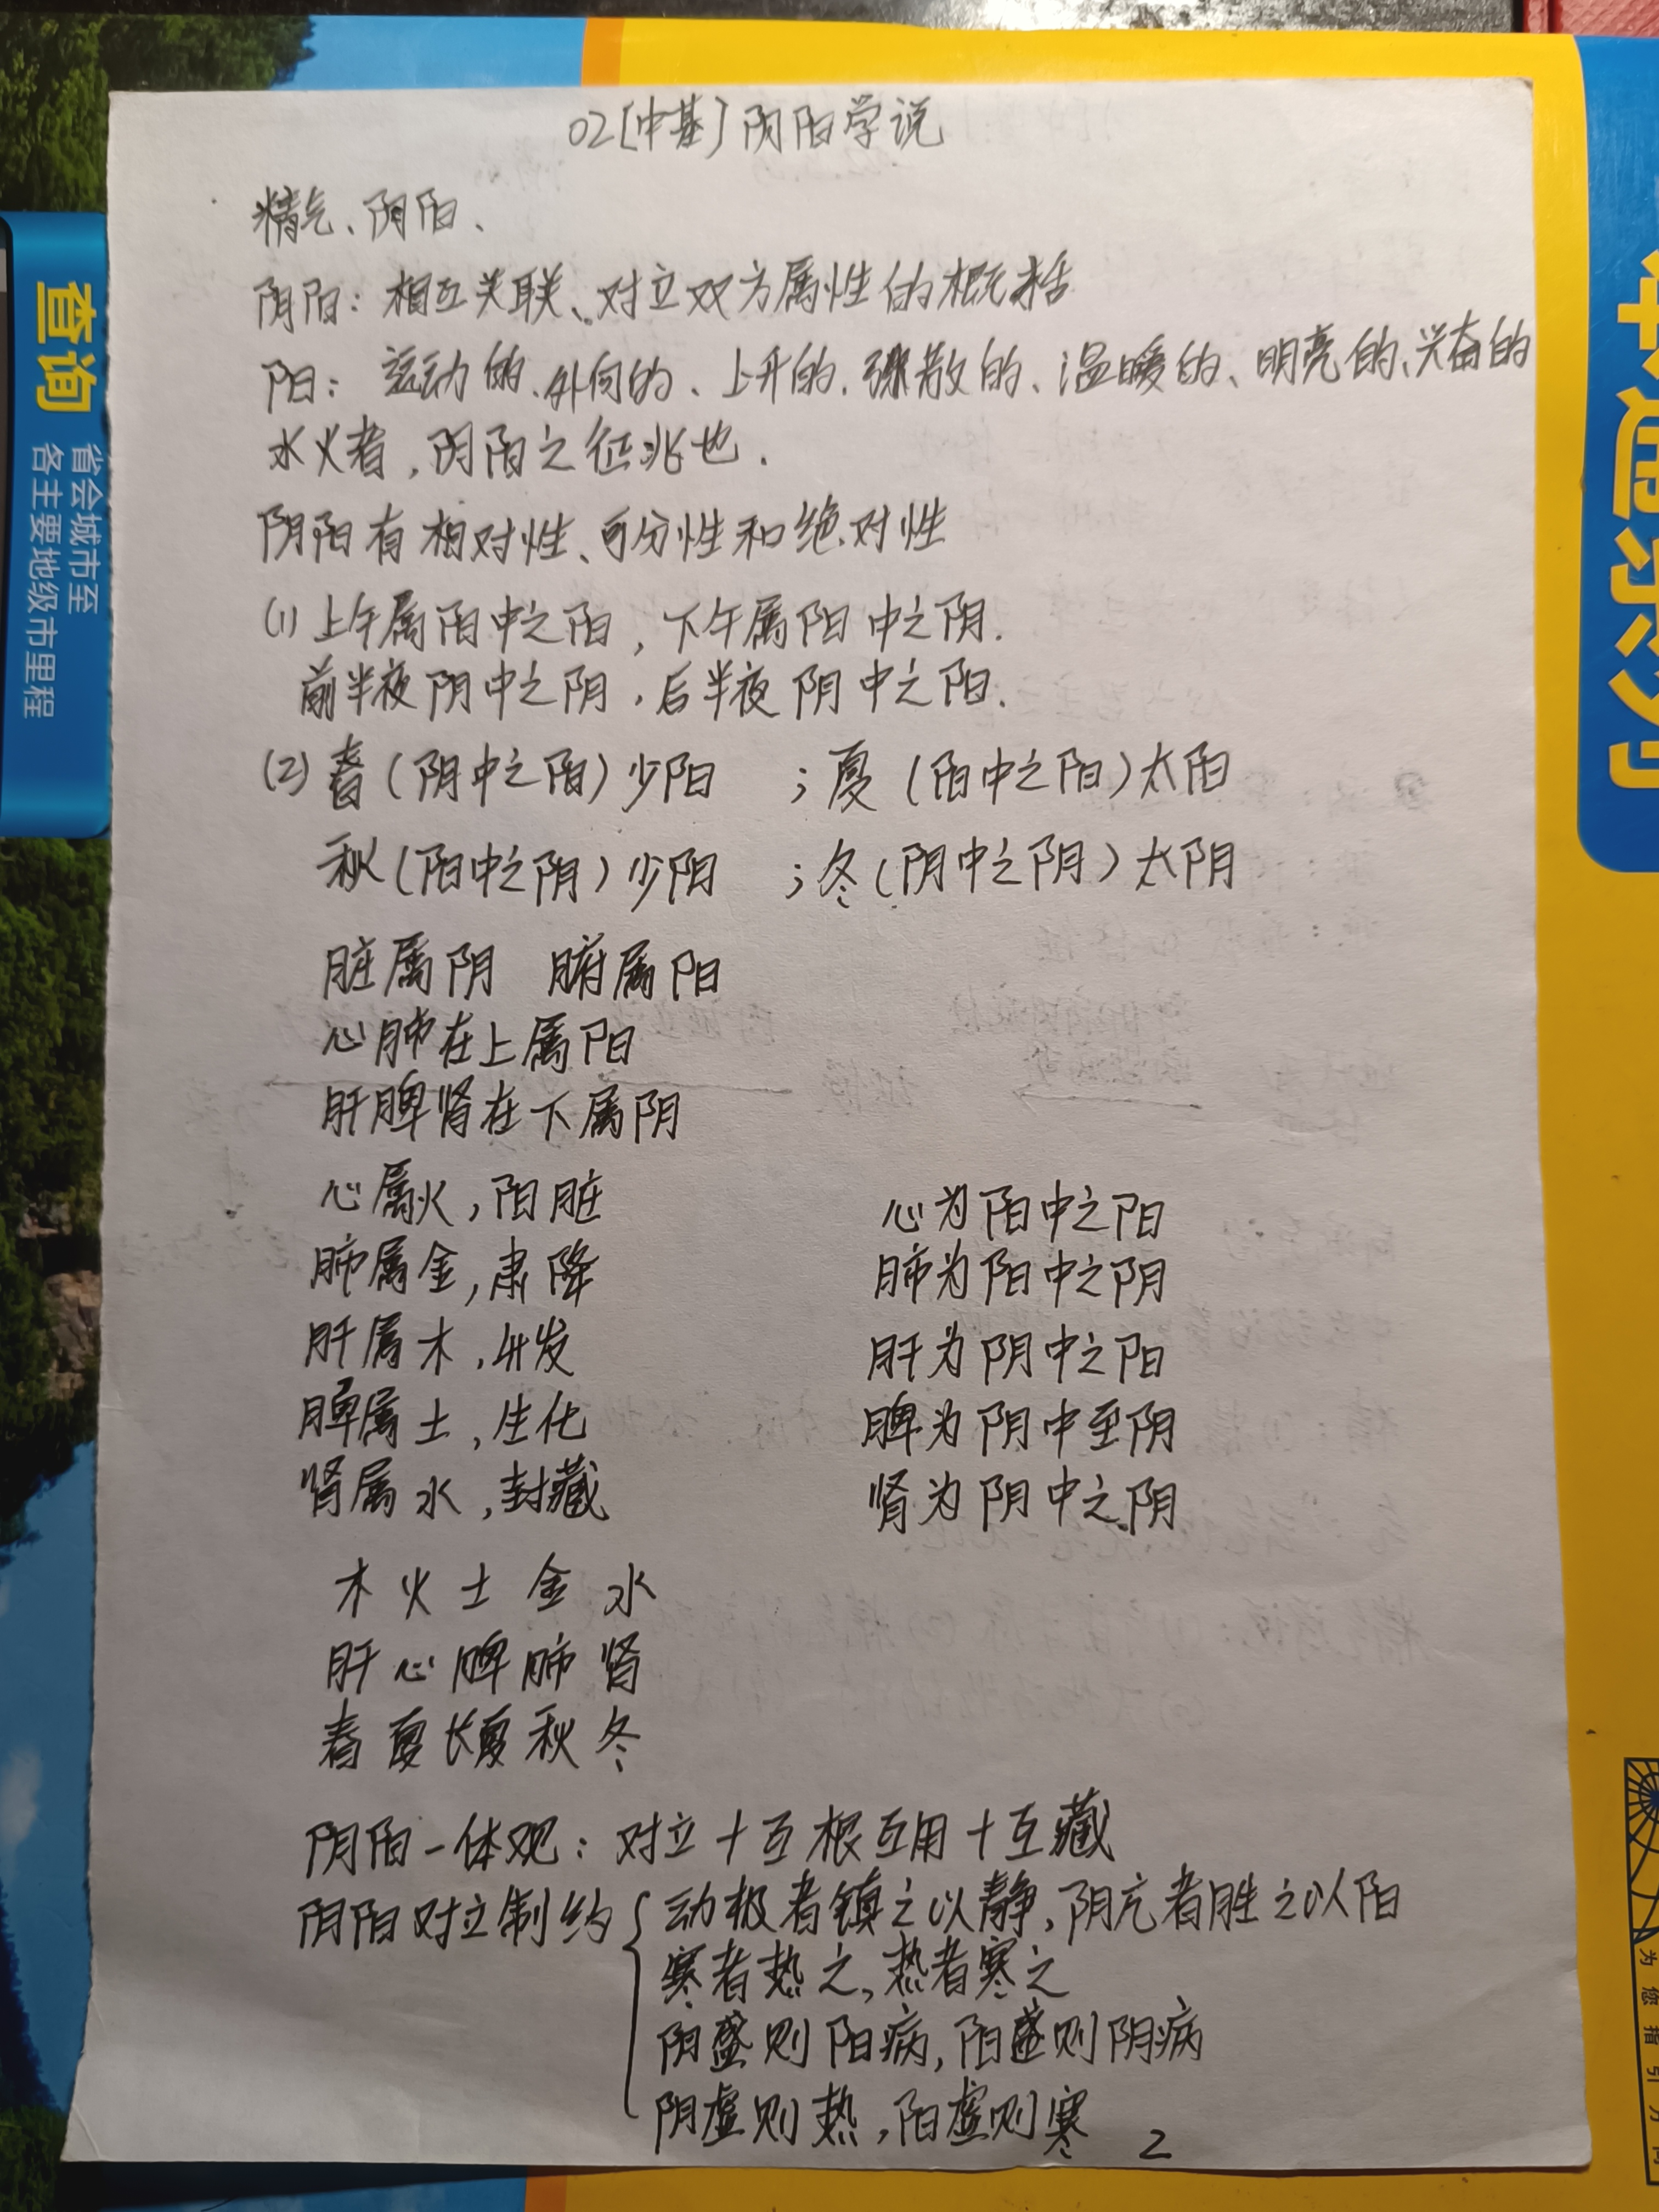 02[中基]阴阳学说
精气、阴阳、
阴阳：相互关联、对立双方属性的概括
阳：运动的、外向的、上升的、弥散的、温暖的、明亮的、兴奋的
水火者，阴阳之征兆也．
阴阳有相对性、可分性和绝对性
(1)上午属阳中之阳，下午属阳中之阴．
前半夜阴中之阴，后半夜阴中之阳．
(2)春(阴中之阳)少阳　；夏(阳中之阳)太阳
秋(阳中之阴)少阳　；冬(阴中之阴)太阴
脏属阴　腑属阳
心肺在上属阳
肝脾肾在下属阴
心属火，阳脏　心为阳中之阳
肺属金，肃降　肺为阳中之阴
肝属木，升发　肝为阴中之阳
脾属土，生化　脾为阴中至阴
肾属水，封藏　肾为阴中之阴
木 火 土 金 水
肝 心 脾 肺 肾
春 夏 长夏 秋 冬
阴阳一体观：对立+互根互用+互藏
阴阳对立制约{动极者镇之以静，阴亢者胜之以阳
寒者热之，热者寒之
阴盛则阳病，阳盛则阴病
阴虚则热，阳虚则寒
2
查询
省会城市至
各主要地级市里程
为您指引方向